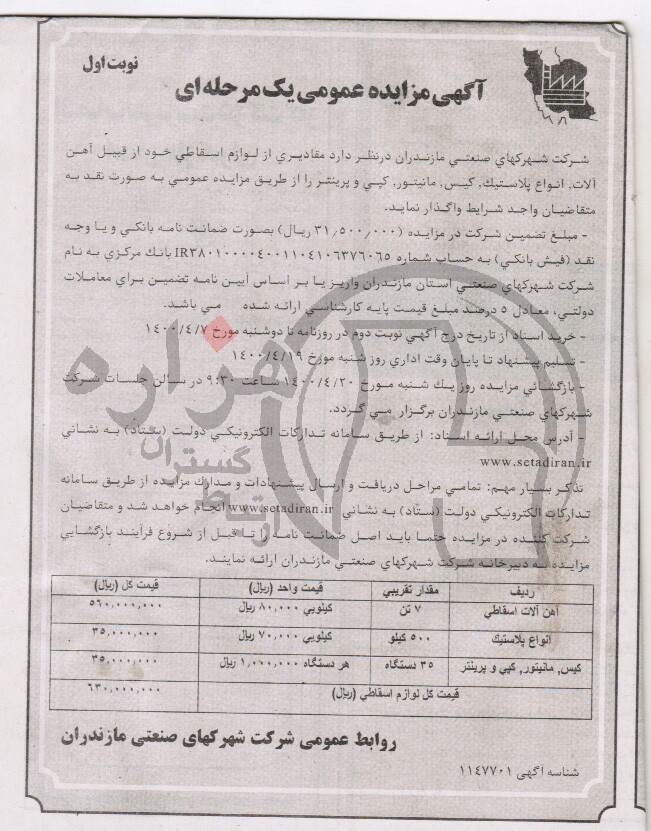 نوبت اول
آگهی مزایده عمومی یک مرحله ای
شرکت شهرکهای صنعتی مازندران درنظر دارد مقادیری از لوازم اسقاطی خود از قبیل آهن
آلات، انواع پلاستیک، کیس، مانیتور، کپی و پرینتر را از طریق مزایده عمومی به صورت نقد به
متقاضیان واجد شرایط واگذار نماید.
- مبلغ تضمین شرکت در مزایده (۳۱٫۵۰۰٫۰۰۰ ریال) بصورت ضمانت نامه بانکی و یا وجه
نقد (فیش بانکی) به حساب شماره IR۳۸۰۱۰۰۰۰۴۰۰۱۱۰۴۱۰۶۳۷۶۰۶۵ بانک مرکزی به نام
شرکت شهرکهای صنعتی استان مازندران واریز یا بر اساس آیین نامه تضمین برای معاملات
دولتی، معادل ۵ درصد مبلغ قیمت پایه کارشناسی ارائه شده می باشد.
- خرید اسناد از تاریخ درج آگهی نوبت دوم در روزنامه تا دوشنبه مورخ ۱۴۰۰/۴/۷
- تسلیم پیشنهاد تا پایان وقت اداری روز شنبه مورخ ۱۴۰۰/۴/۱۹
- بازگشائی مزایده روز یک شنبه مورخ ۱۴۰۰/۴/۲۰ ساعت ۹:۳۰ در سالن جلسات شرکت
شهرکهای صنعتی مازندران برگزار می گردد.
- آدرس محل ارائه اسناد: از طریق سامانه تدارکات الکترونیکی دولت (ستاد) به نشانی
www.setadiran.ir
تذکر بسیار مهم: تمامی مراحل دریافت و ارسال پیشنهادات و مدارک مزایده از طریق سامانه
تدارکات الکترونیکی دولت (ستاد) به نشانی www.setadiran.ir انجام خواهد شد و متقاضیان
شرکت کننده در مزایده حتما باید اصل ضمانت نامه را تا قبل از شروع فرآیند بازگشایی
مزایده به دبیرخانه شرکت شهرکهای صنعتی مازندران ارائه نمایند.
ردیف مقدار تقریبی قیمت واحد (ریال) قیمت کل (ریال)
آهن آلات اسقاطی ۷ تن کیلویی ۸۰,۰۰۰ ریال ۵۶۰,۰۰۰,۰۰۰
انواع پلاستیک ۵۰۰ کیلو کیلویی ۷۰,۰۰۰ ریال ۳۵,۰۰۰,۰۰۰
کیس، مانیتور، کپی و پرینتر ۳۵ دستگاه هر دستگاه ۱,۰۰۰,۰۰۰ ریال ۳۵,۰۰۰,۰۰۰
قیمت کل لوازم اسقاطی (ریال) ۶۳۰,۰۰۰,۰۰۰
روابط عمومی شرکت شهرکهای صنعتی مازندران
شناسه آگهی ۱۱۴۷۷۰۱
هزاره
گستران